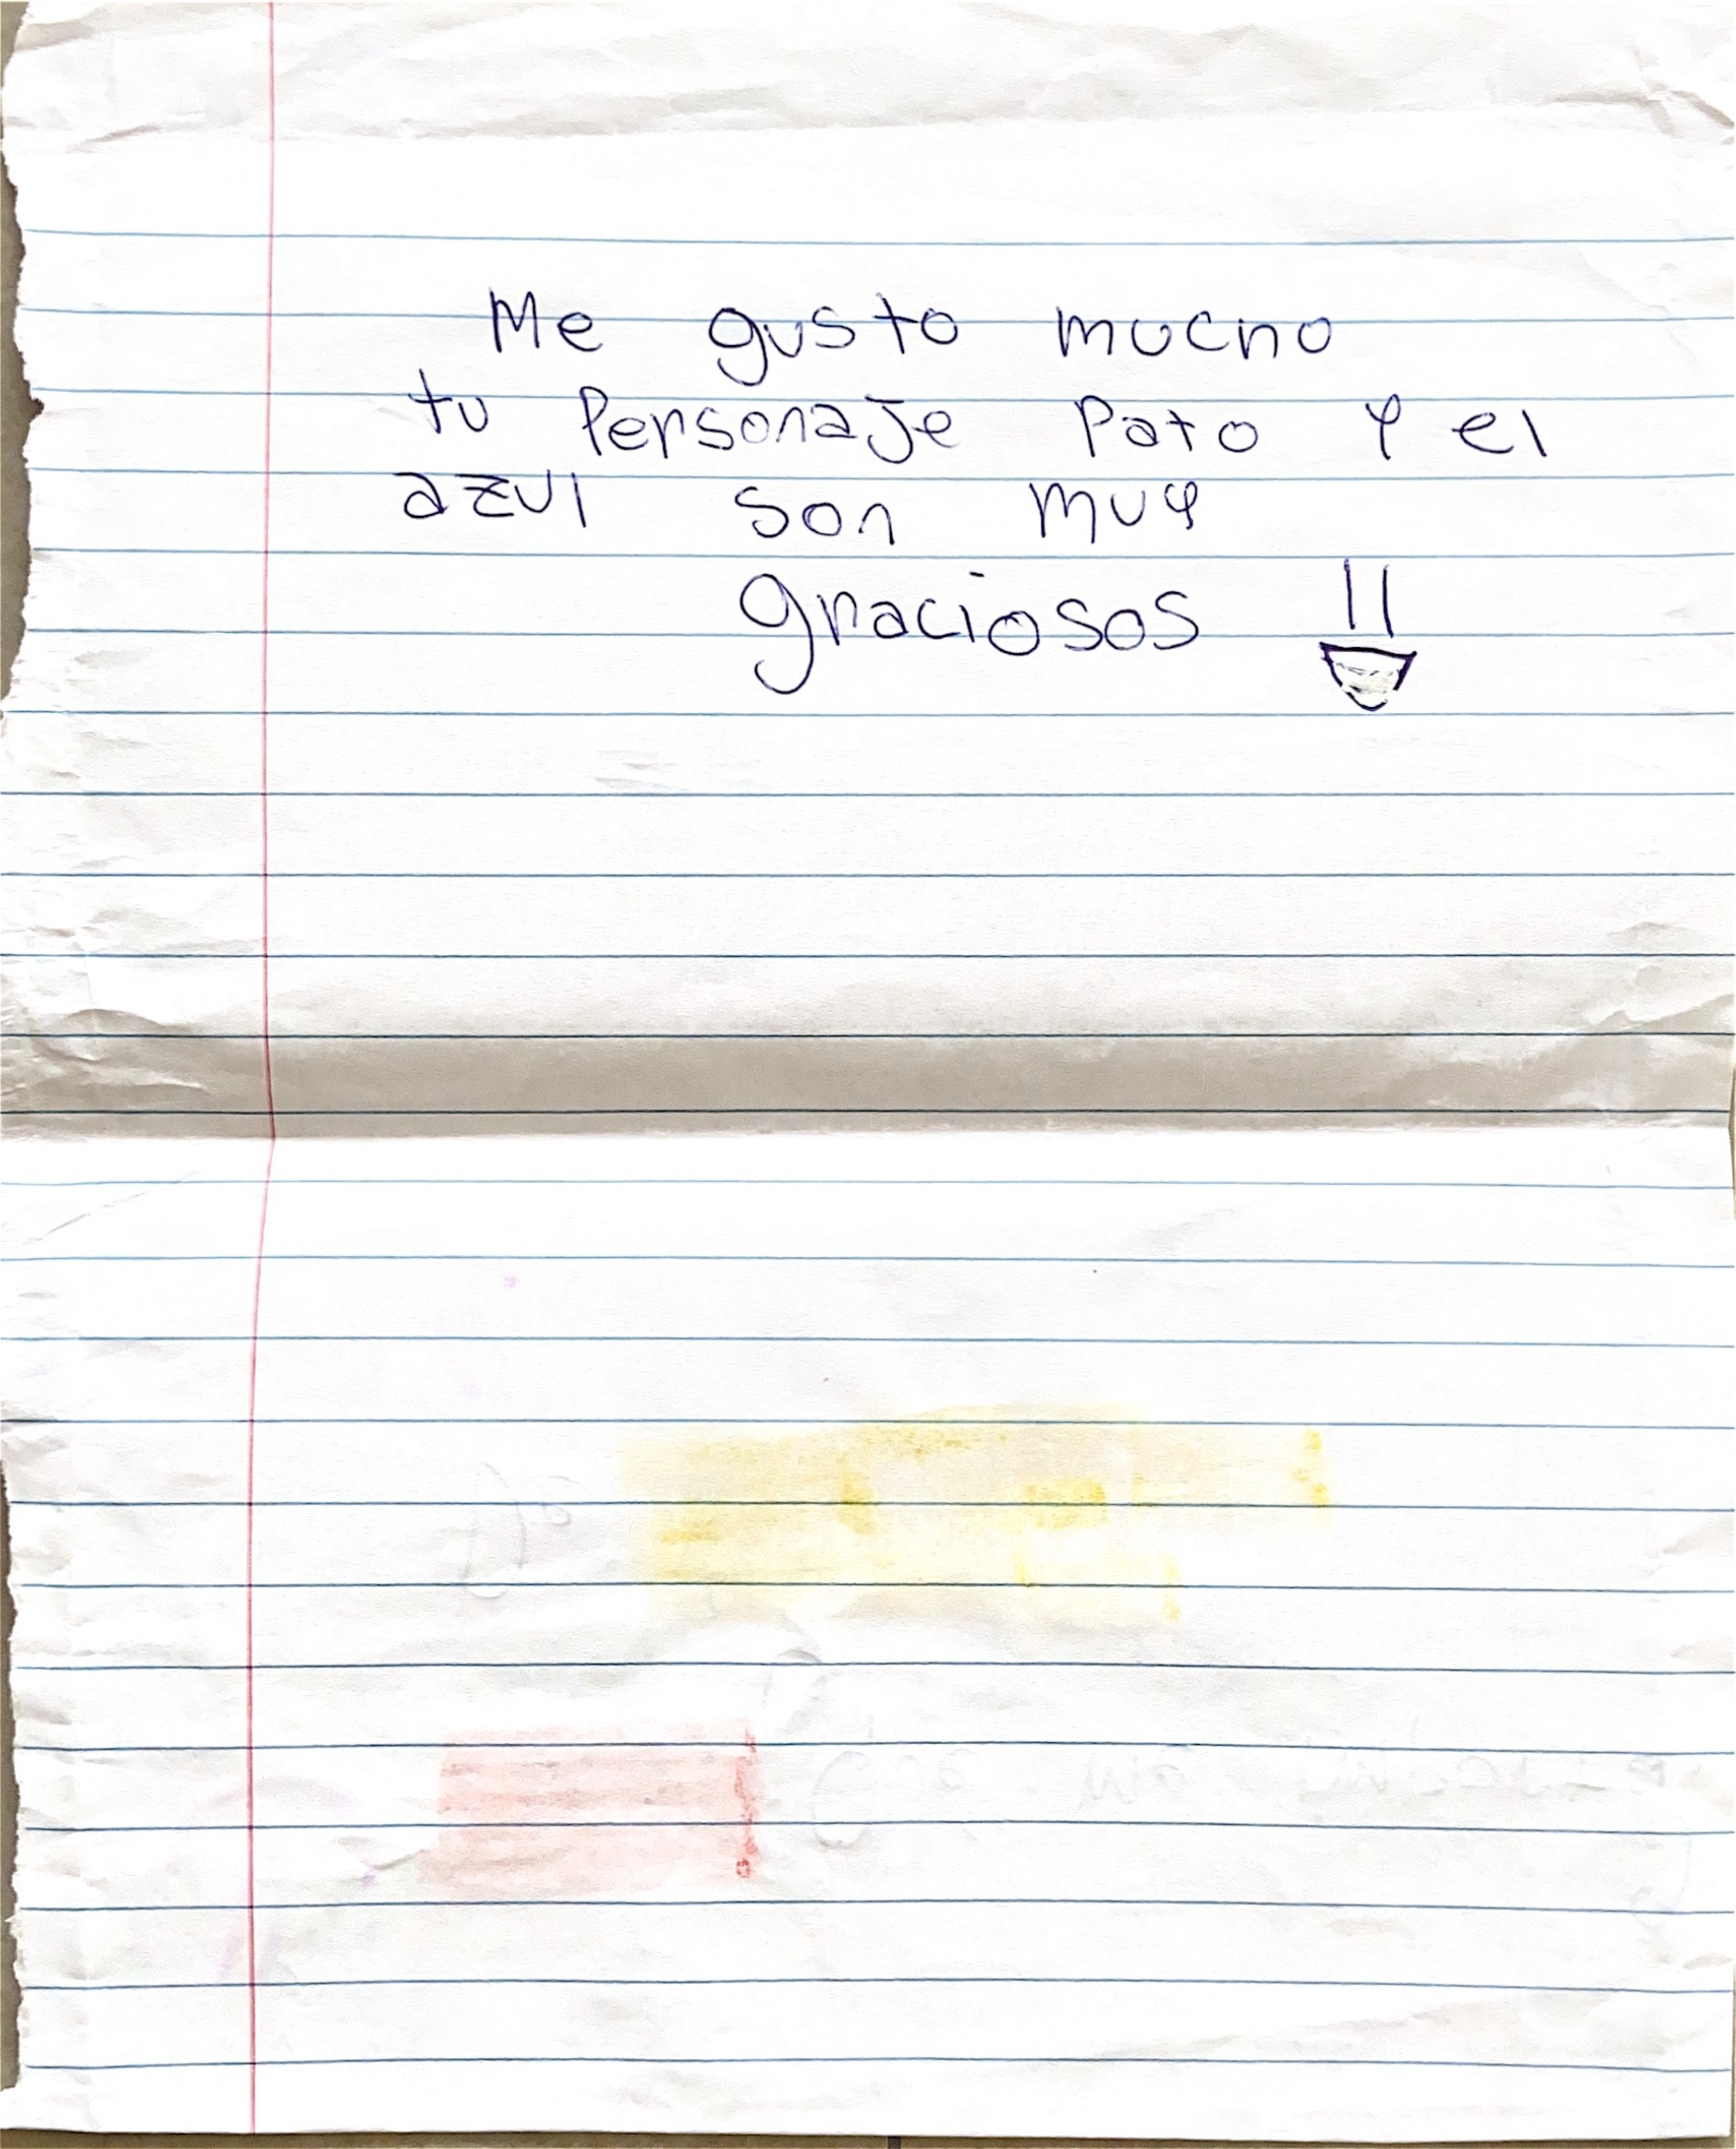 Me gusto mucho
tu Personaje Pato y el
azul son muy
graciosos